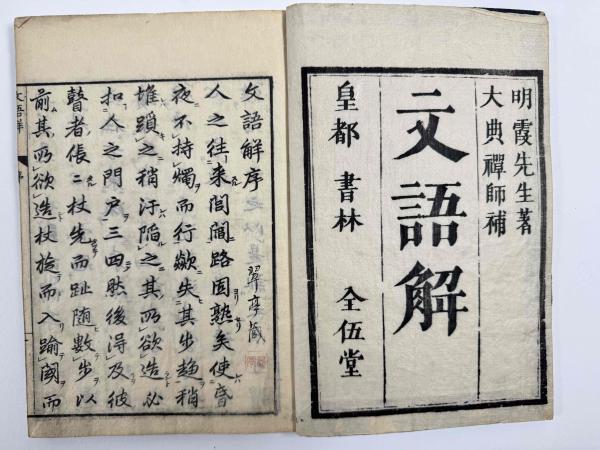 明霞先生著
大典禪師補
文語解
皇都 書林 全伍堂
文語解序
翠亭藏
人之往來閭閻路固熟矣使昏
夜不持燭而行歘失其步趨稍
堆躓之稍汙陷之其所欲造必
扣人之門戶三四然後得及彼
瞽者倀二杖先而趾随數步以
前其所欲造杖旋而入踰閾而
文語解 序